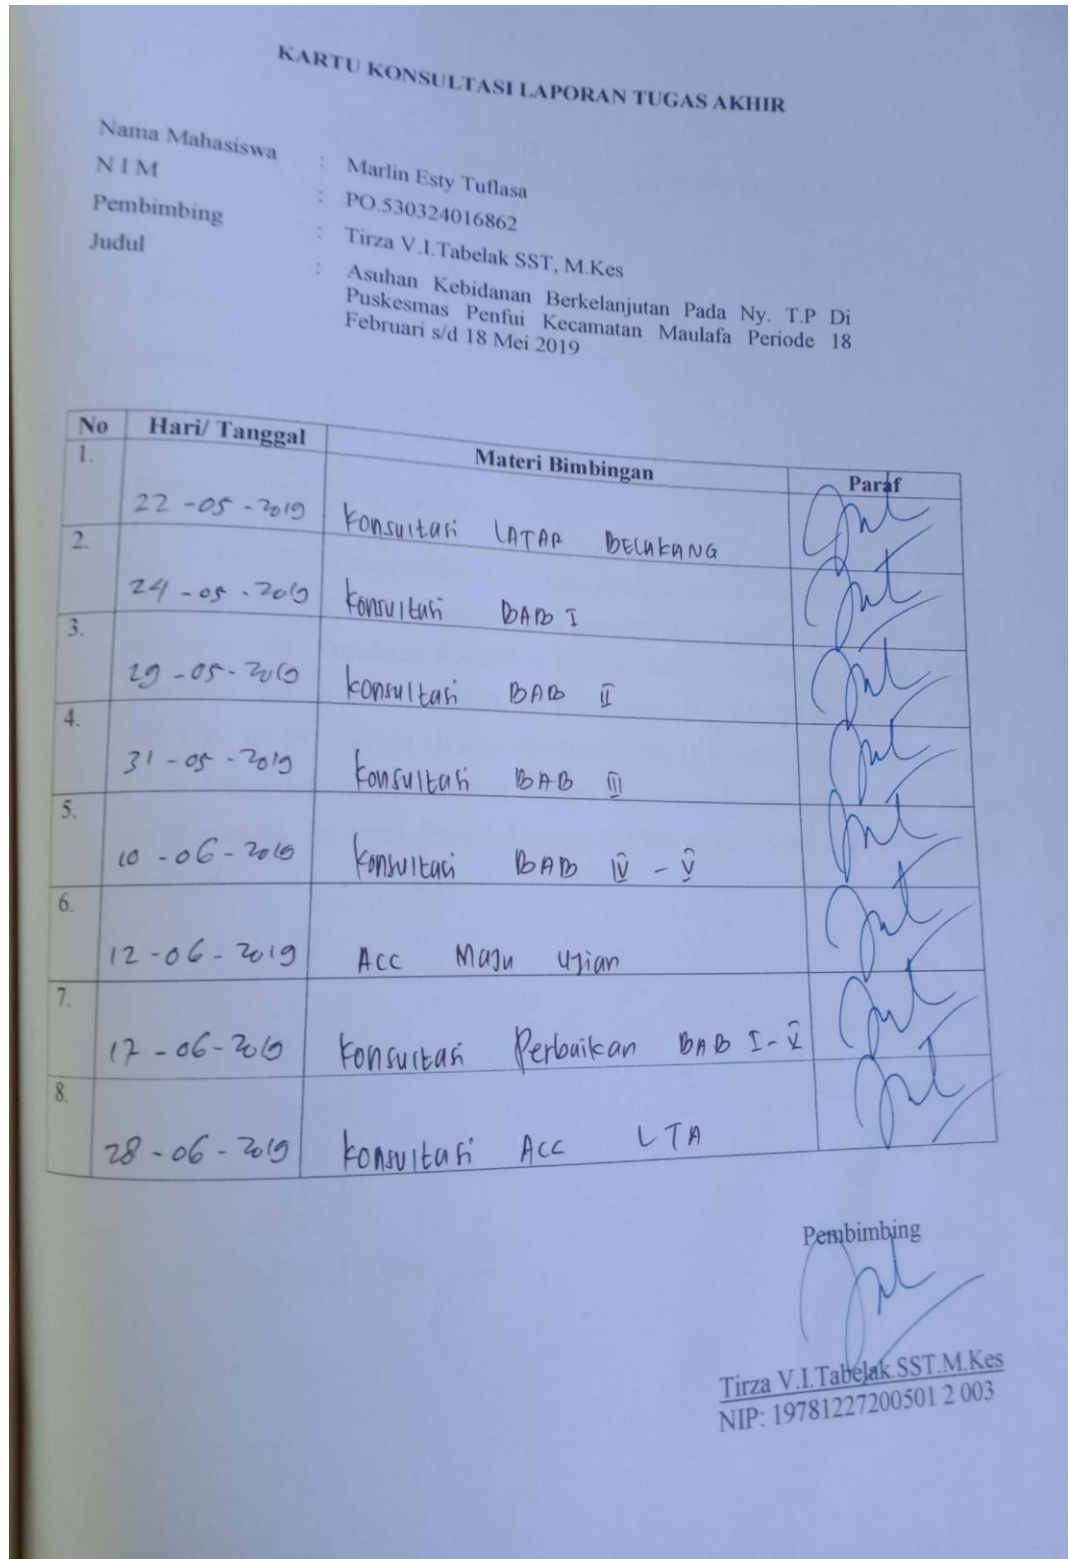 KARTU KONSULTASI LAPORAN TUGAS AKHIR
Nama Mahasiswa : Marlin Esty Tuflasa
N I M : PO.530324016862
Pembimbing : Tirza V.I.Tabelak SST, M.Kes
Judul : Asuhan Kebidanan Berkelanjutan Pada Ny. T.P Di
Puskesmas Penfui Kecamatan Maulafa Periode 18
Februari s/d 18 Mei 2019
No Hari/ Tanggal Materi Bimbingan Paraf
1. 22-05-2019 Konsultasi LATAR BELAKANG
2. 24-05-2019 Konsultasi BAB I
3. 29-05-2019 Konsultasi BAB II
4. 31-05-2019 Konsultasi BAB III
5. 10-06-2019 Konsultasi BAB IV - V
6. 12-06-2019 Acc Maju Ujian
7. 17-06-2019 Konsultasi Perbaikan BAB I-V
8. 28-06-2019 Konsultasi Acc LTA
Pembimbing
Tirza V.I.Tabelak.SST.M.Kes
NIP: 19781227200501 2 003